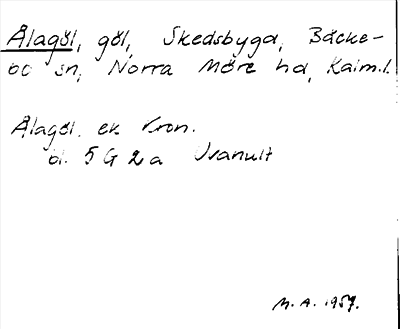 Ålagöl, göl, Skedsbyga, Bäcke-
bo sn, Norra Möre hd, Kalm.l.
Ålagöl. ek Kron.
bl. 5 G 2 a Uranult
M. A. 1957.